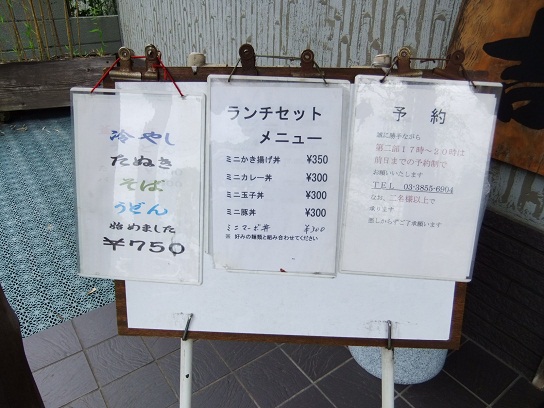 冷やし
たぬき
そば
うどん
始めました
¥750
ランチセット
メニュー
ミニかき揚げ丼 ¥350
ミニカレー丼 ¥300
ミニ玉子丼 ¥300
ミニ豚丼 ¥300
ミニマーボ丼 ¥300
※ 好みの麺類と組み合わせてください
予約
誠に勝手ながら
第二部17時〜20時は
前日までの予約制で
お願いいたします
TEL 03-3855-6904
なお、二名様以上で
承ります
悪しからずご了承願います